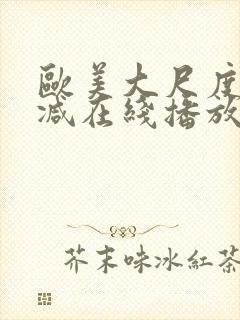 歐美大尺度
減在綫播放
芥末味冰紅茶